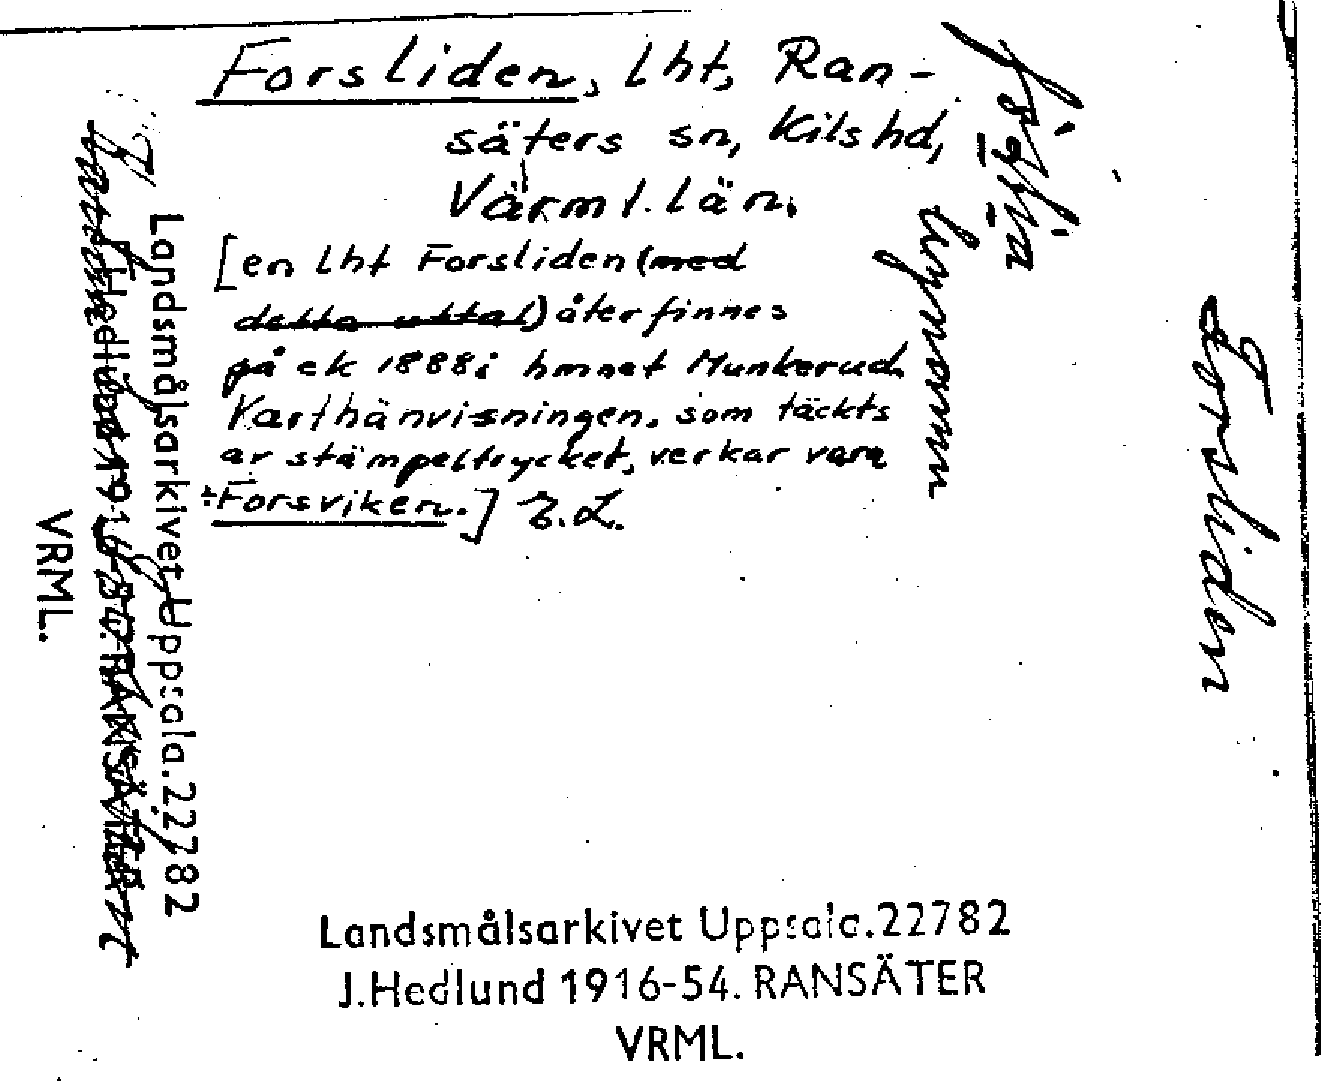 Forsliden, lht, Ran-
säters sn, Kils hd,
Värml. län.
[en lht Forsliden (med
detta uttal) återfinnes
på ek 1888 i hmnet Munkerud.
Karthänvisningen, som täckts
av stämpeltrycket, verkar vara
Forsviken.] E.L.
Forsliden
Landsmålsarkivet Uppsala. 22782
VRML.
Landsmålsarkivet Uppsala. 22782
J. Hedlund 1916-54. RANSÄTER
VRML.